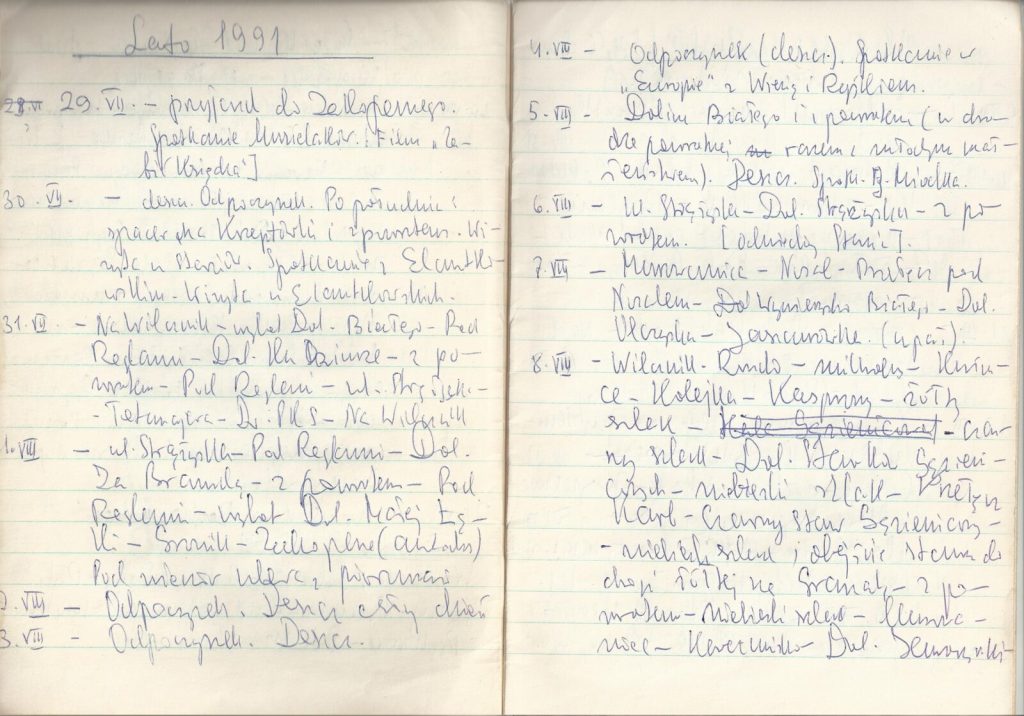 Lato 1991
29. VII. – przyjazd do Zakopanego.
Spotkanie Musielaków. Film „Za-
bić Księdza"]
30. VII. – deszcz. Odpoczynek. Po południu:
spacer na Krzeptówki i z powrotem. Wi-
zyta u Spotkanie z
wskim. Wizyta u
31. VII – Na Wilcznik – wylot Dol. Białego – Pod
Reglami – Dol. Ku Dziurze – z po-
wrotem – Pod Reglami – ul. Strążyska –
– Tetmajera – Dw. PKS – Na Wilcznik
1. VIII – ul. Strążyska – Pod Reglami – Dol.
Za Bramką – z powrotem – Pod
Reglami – wylot Dol. Małej Łą-
ki – Gronik – Zakopane (autobus)
Pod wieczór ulewa, pioruny
2. VIII – Odpoczynek. Deszcz cały dzień
3. VIII – Odpoczynek. Deszcz.
4. VIII – Odpoczynek (deszcz). Spotkanie w
„Europie" z i
5. VIII – Dolina Białego i z powrotem (w dro-
dze powrotnej razem z młodym mał-
żeństwem). Deszcz. Spotk. Miodka.
6. VIII – ul. Strążyska – Dol. Strążyska – z po-
wrotem.
7. VIII – Murowanica – Nosal – Przełęcz pod
Nosalem – Białego – Dol.
Olczyska – Jaszczurówka. (upał).
8. VIII – Wilcznik – Rondo – mikrobus – Kuźni-
ce – Kolejka – Kasprowy – żółty
szlak – Hala Gąsienicowa – czar-
ny szlak – Dol. Stawów Gąsieni-
cowych – niebieski szlak – Przełęcz
Karb – Czarny Staw Gąsienicowy –
– niebieski szlak i obejście stawu do
żółtej na Granaty – z po-
wrotem – niebieski szlak – Murowa-
niec – Karczmisko – Dol. Jaworzynki –